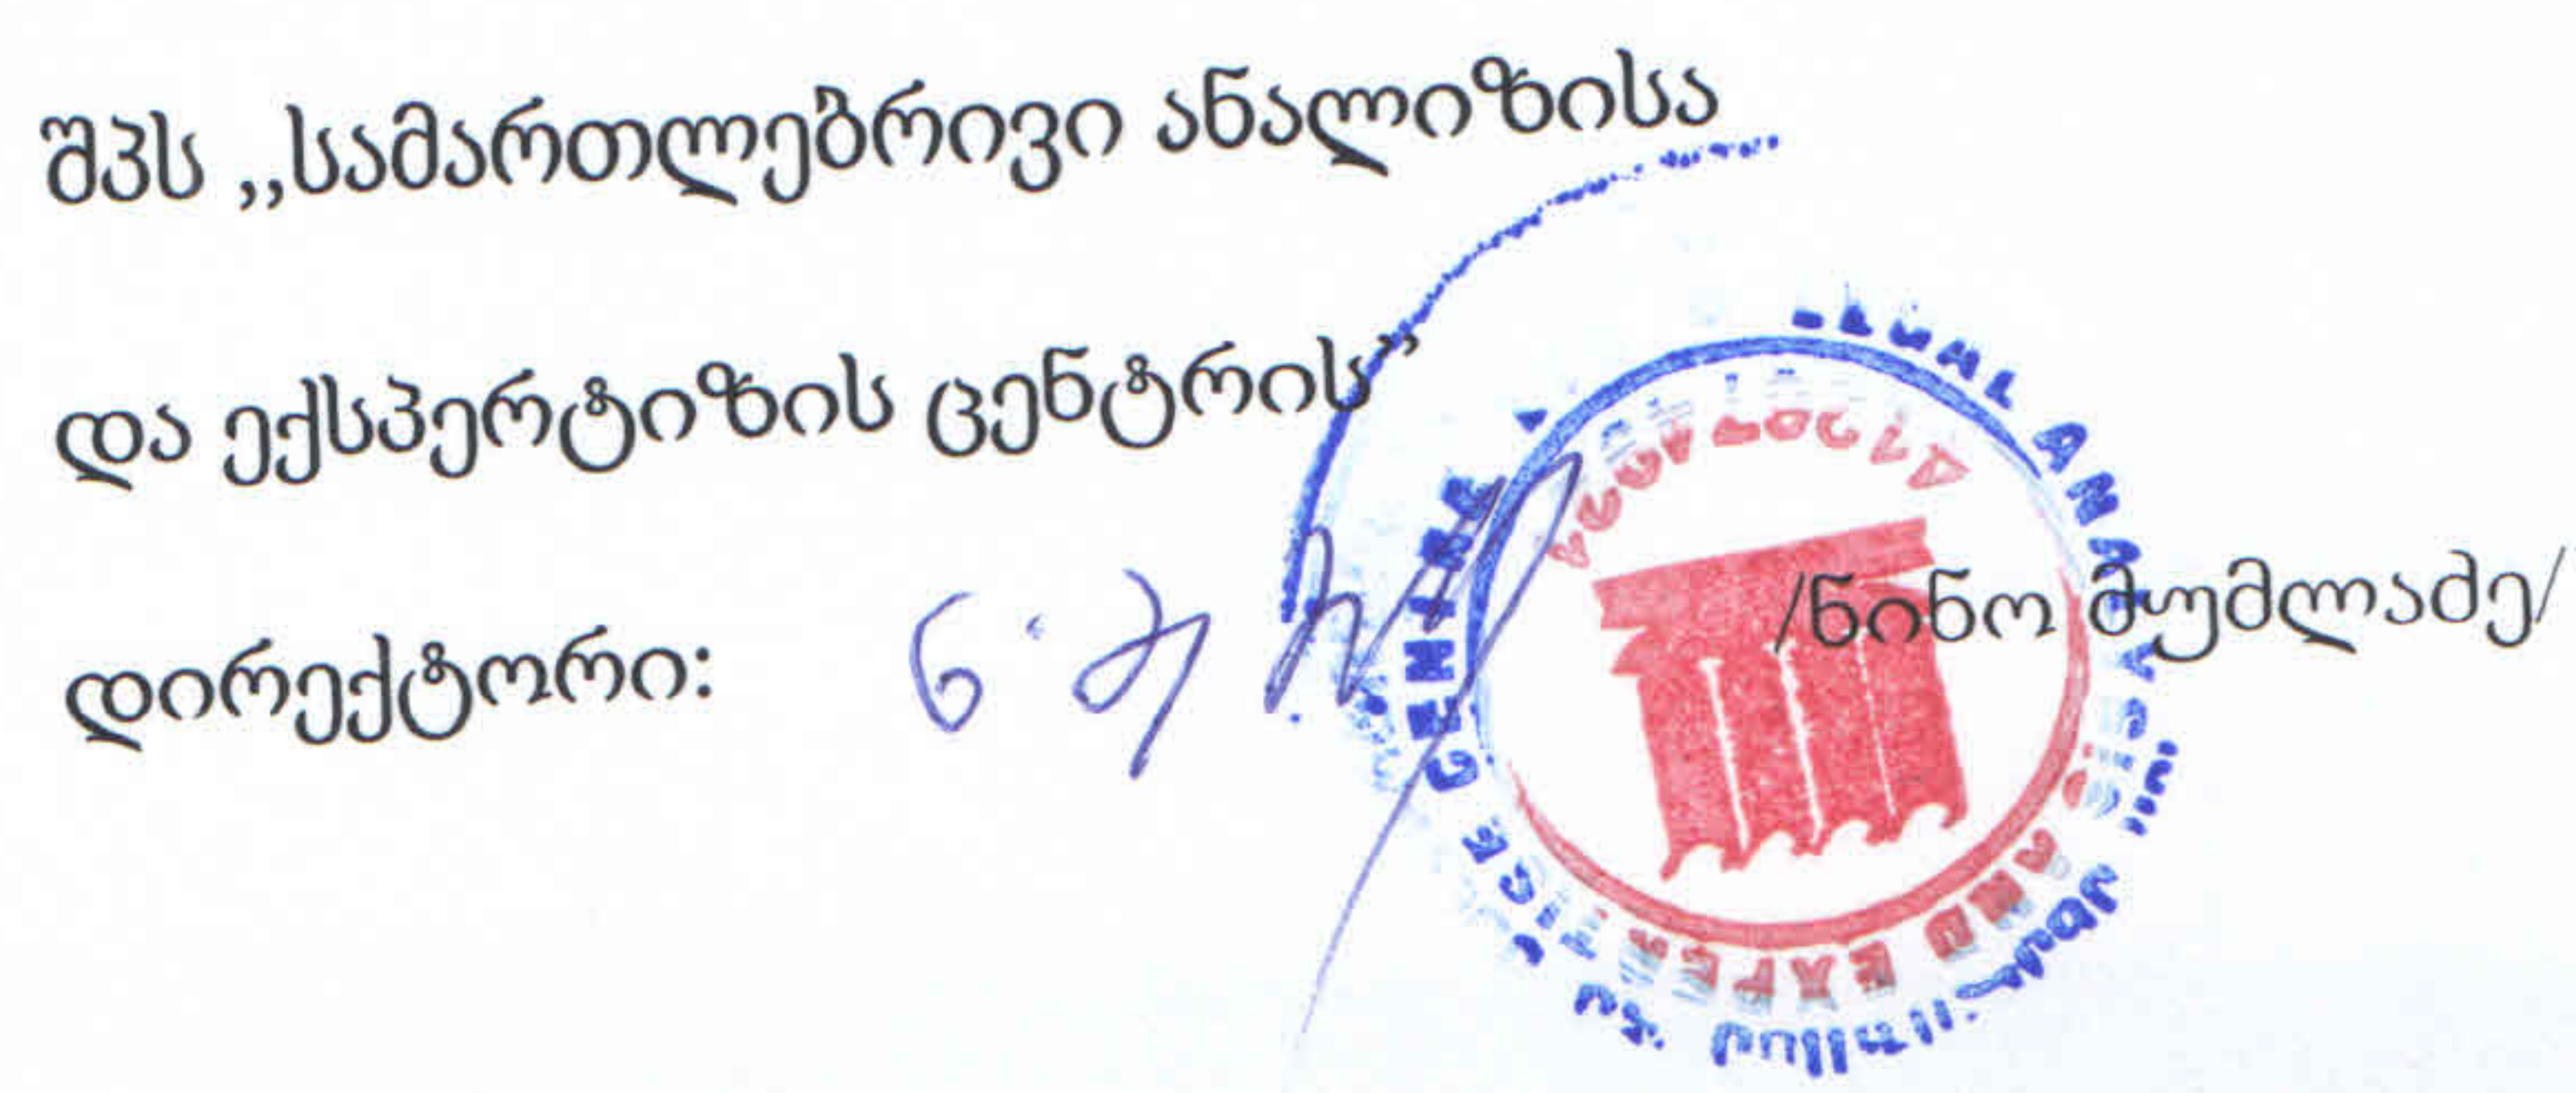 შპს ,,სამართლებრივი ანალიზისა
და ექსპერტიზის ცენტრის”
დირექტორი: /ნინო მუმლაძე/
LEGAL ANALYSIS AND EXPERTISE CENTER